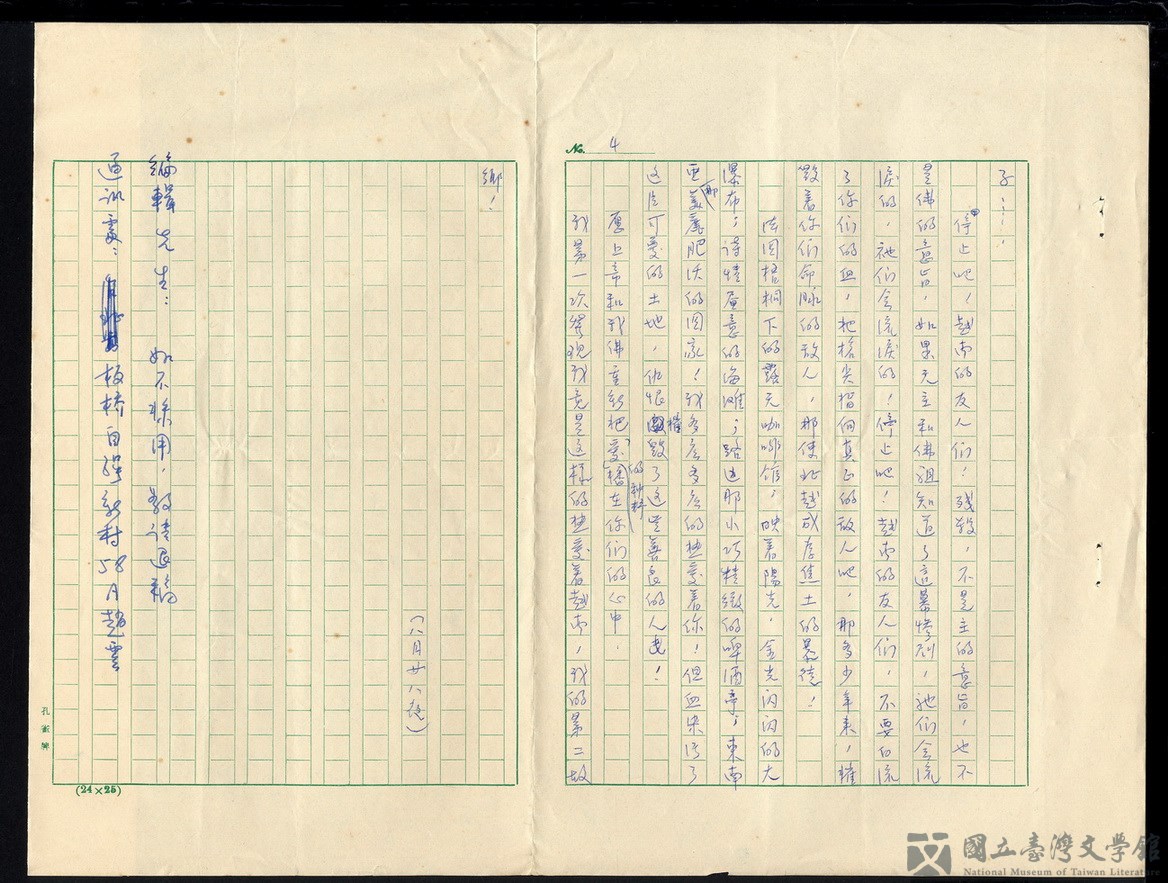 No. 4
子……。
停止吧！越南的友人們！殘殺，不是主的意旨，也不
是佛的意旨，如果天主和佛祖知道了這幕慘劇，祂們会流
淚的，祂們会流淚的！停止吧！越南的友人們，不要白流
了你們的血，把槍尖指向真正的敵人吧，那多少年来，摧
毀着你們命脉的敌人，那使北越成為焦土的暴徒！
法国梧桐下的露天咖啡館，映着陽光，金光闪闪的大
瀑布；詩情画意的海灘；路边那小巧精緻的啤酒亭；東南
亞那美麗肥沃的国家！我多么多么的热愛着你！但血染污了
这片可愛的土地，仇恨摧毀了这些善良的人民！
愿上帝和我佛重新把愛的种籽播在你们的心中．
我第一次發現我竟是这樣的热愛着越南，我的第二故
鄉！
（八月廿八夜）
編輯先生： 如不採用，敬請退稿
通訊處：板橋自強新村58号趙雲
孔雀牌
(24×25)
國立臺灣文學館
National Museum of Taiwan Literature